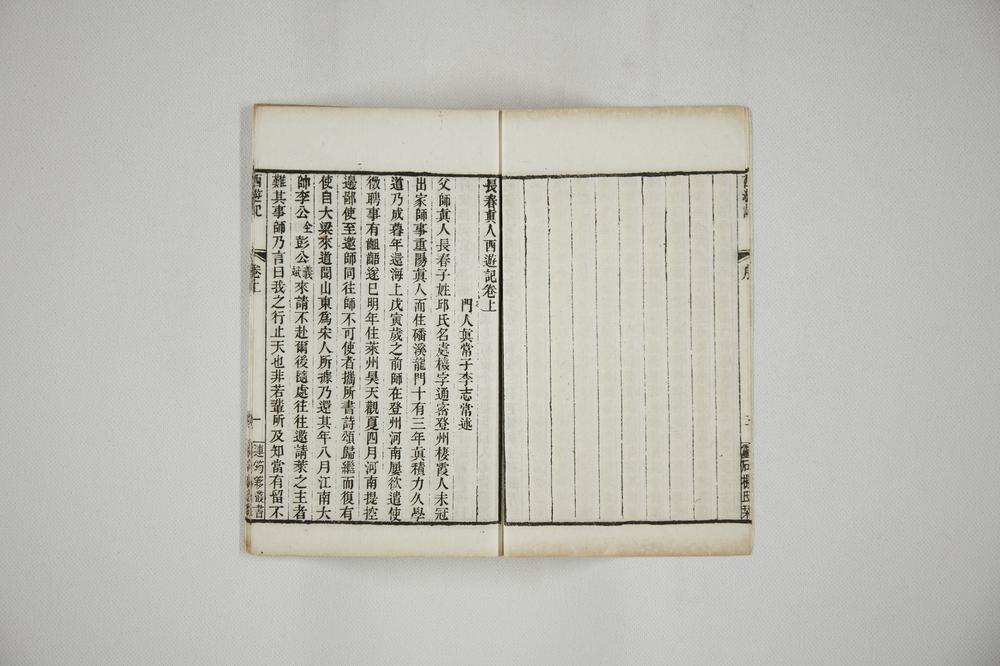 長春眞人西遊記卷上
門人眞常子李志常述
父師眞人長春子姓邱氏名處機字通密登州棲霞人未冠
出家師事重陽眞人而住磻溪龍門十有三年眞積力久學
道乃成暮年還海上戊寅歲之前師在登州河南屢欲遣使
徵聘事有齟齬遂已明年住萊州昊天觀夏四月河南提控
邊鄙使至邀師同往師不可使者攜所書詩頌歸繼而復有
使自大梁來道聞山東爲宋人所據乃還其年八月江南大
帥李公全彭公義斌來請不赴爾後隨處往往邀請萊之主者
難其事師乃言曰我之行止天也非若輩所及知當有留不
西遊記
卷上
一
連筠簃叢書
西遊記
序
三